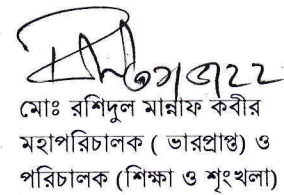 মোঃ রশিদুল মান্নাফ কবীর
মহাপরিচালক ( ভারপ্রাপ্ত) ও
পরিচালক (শিক্ষা ও শৃংখলা)